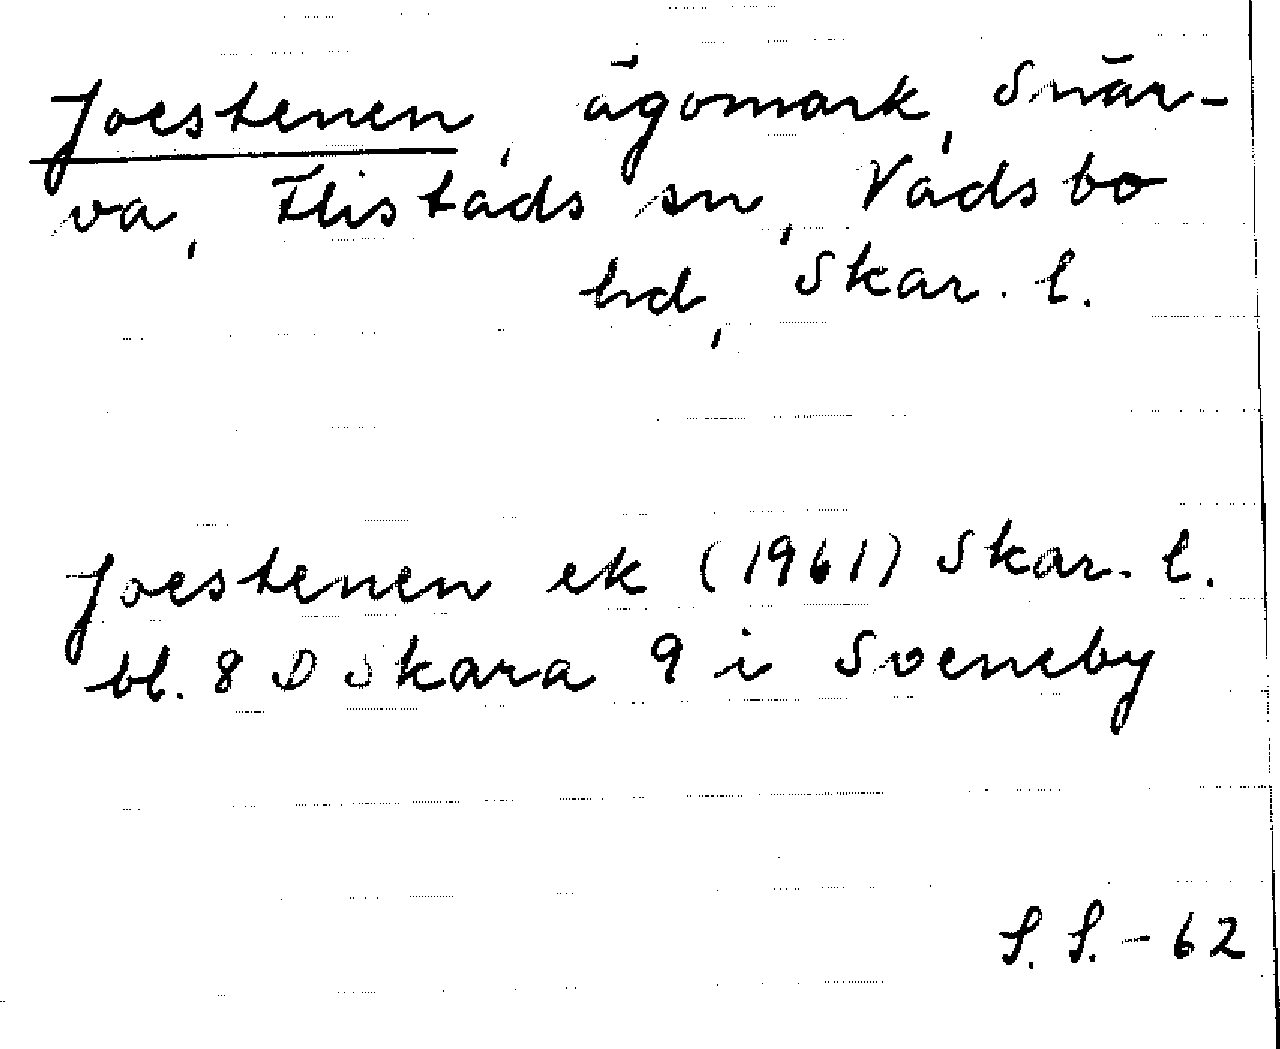 Joestenen, ägomark, Snär-
va, Flistads sn, Vadsbo
hd, Skar. l.
Joestenen ek (1961) Skar. l.
bl. 8 D Skara 9 i Sveneby
S. S. - 62